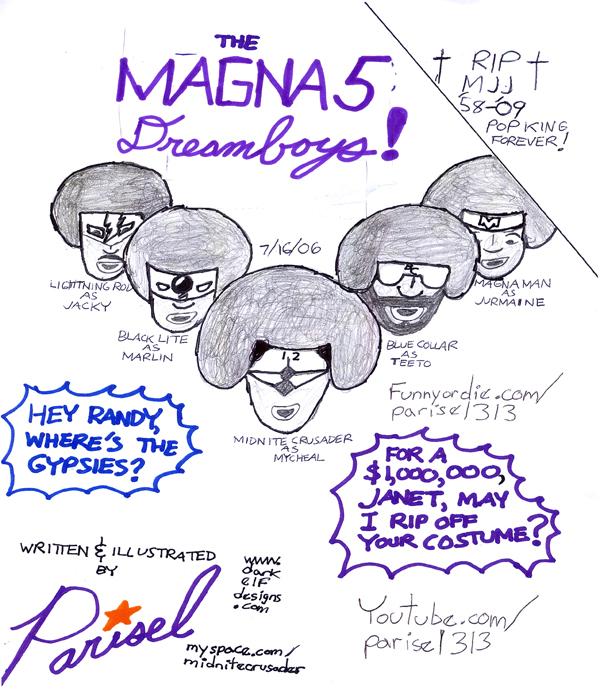 THE
MAGNA 5
Dreamboys!
† RIP †
MJJ
'58-'09
POP KING
FOREVER!
7/16/06
M
1,2
LIGHTNING ROD
AS
JACKY
BLACK LITE
AS
MARLIN
MIDNITE CRUSADER
AS
MYCHEAL
BLUE COLLAR
AS
TEETO
MAGNA MAN
AS
JURMAINE
Funnyordie.com/
parisel313
HEY RANDY,
WHERE'S THE
GYPSIES?
FOR A
$1,000,000,
JANET, MAY
I RIP OFF
YOUR COSTUME?
WRITTEN & ILLUSTRATED
BY
Parisel
www.
dark
elf
designs
.com
myspace.com/
midnitecrusader
Youtube.com/
parisel313